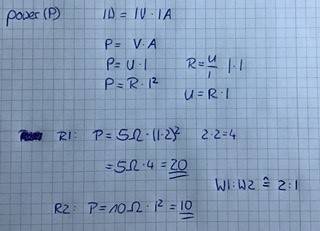 power (P) 1W = 1V · 1A
P = V · A
P = U · I
R = U/I | · I
P = R · I²
U = R · I
R1: P = 5Ω · (I·2)² 2·2=4
= 5Ω · 4 = 20
W1:W2 ≙ 2:1
R2: P = 10Ω · I² = 10